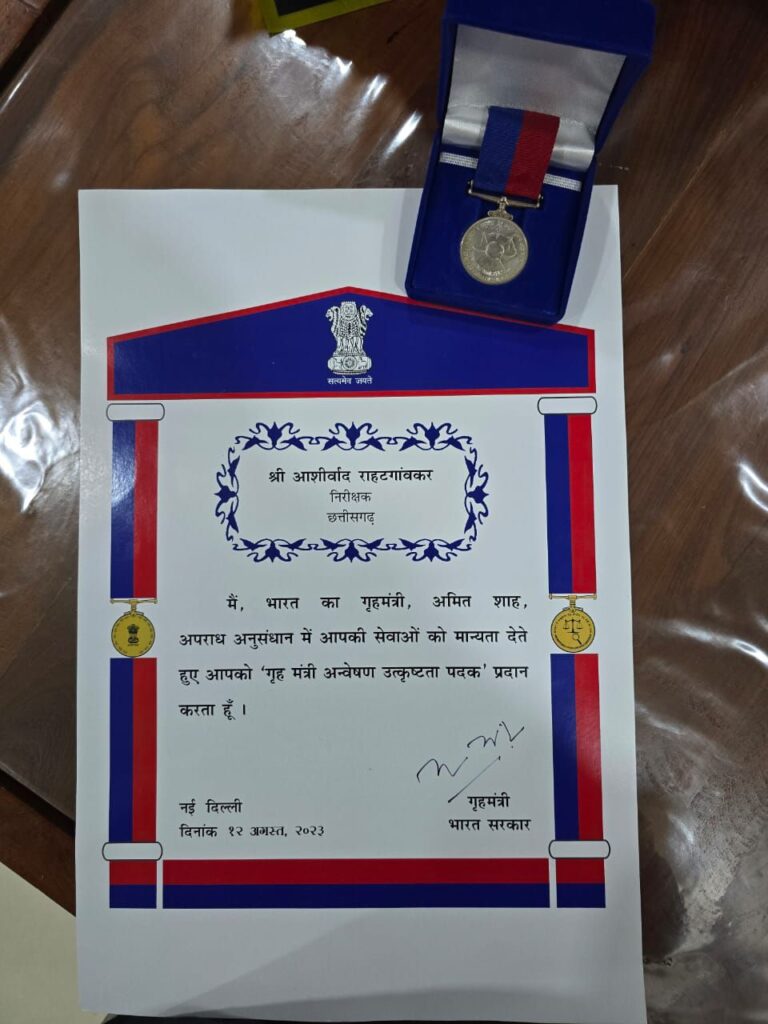 सत्यमेव जयते
श्री आशीर्वाद राहटगांवकर
निरीक्षक
छत्तीसगढ़
मैं, भारत का गृहमंत्री, अमित शाह,
अपराध अनुसंधान में आपकी सेवाओं को मान्यता देते
हुए आपको ‘गृह मंत्री अन्वेषण उत्कृष्टता पदक’ प्रदान
करता हूँ ।
नई दिल्ली
दिनांक १२ अगस्त, २०२३
गृहमंत्री
भारत सरकार